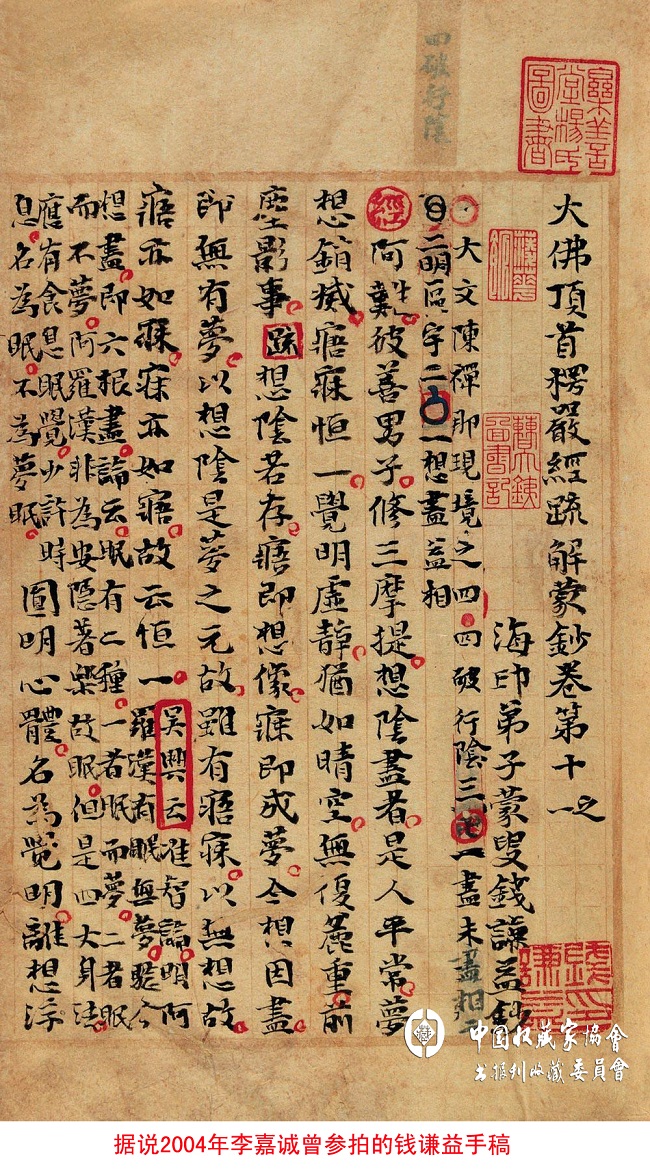 四破行陰
大佛頂首楞嚴經疏解蒙鈔卷第十之一
海印弟子蒙叟錢謙益鈔
大文陳禪那現境之四 四破行陰三 一盡未盡相
二明區宇二 一想盡益相
經 阿難彼善男子修三摩提想陰盡者是人平常夢
想銷滅寤寐恒一覺明虛靜猶如晴空無復麁重前
塵影事 疏 想陰若存寤即想像寐即成夢今想因盡
即無有夢以想陰是夢之元故雖有寤寐以無想故
寤亦如寐寐亦如寤故云恒一 吳興云准智論明阿
羅漢有眠無夢 今
想盡即六根盡論云眠有二種一者眠而夢二者眠
而不夢阿羅漢非為安隱著樂故眠但是四大身法
應有食息眠覺少許時
息名為眠不為夢眠 圓明心體名為覺明離想浮
中国收藏家協會
书报刊收藏委員會
据说2004年李嘉诚曾参拍的钱谦益手稿